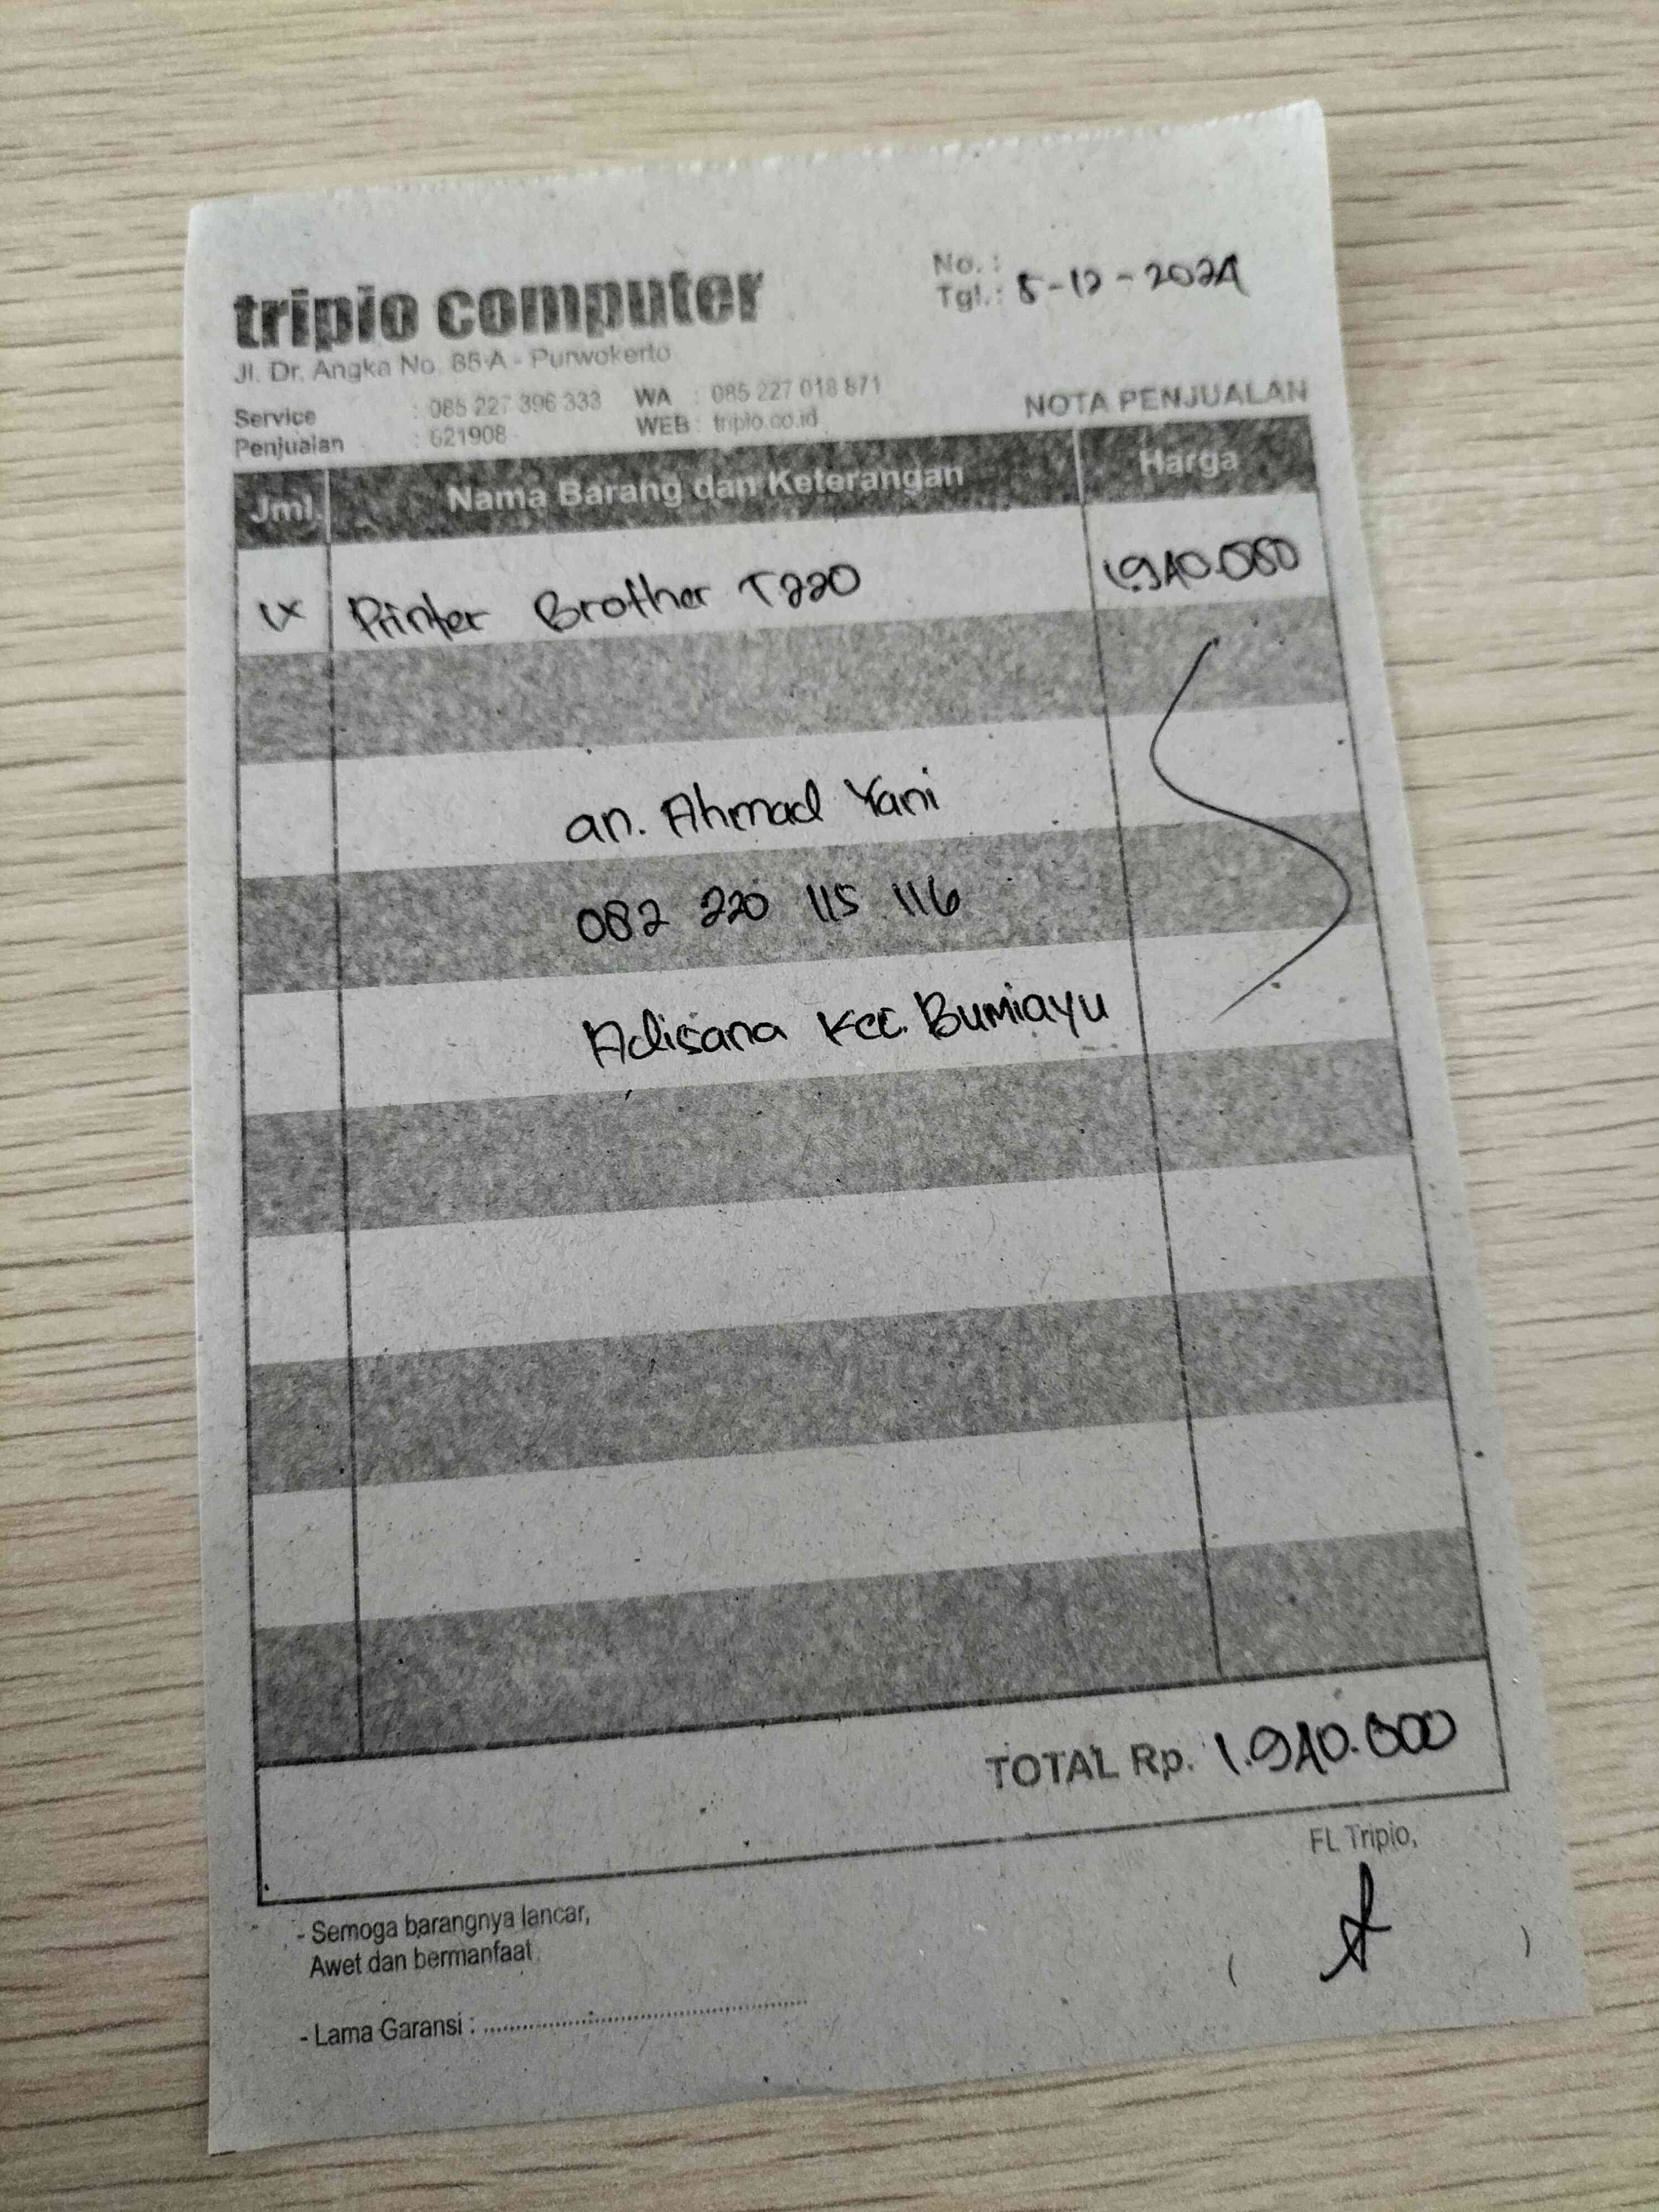 tripio computer
No. :
Tgl. : 5-12-2024
Jl. Dr. Angka No. 85 A - Purwokerto
Service : 085 227 396 333 WA : 085 227 018 871
Penjualan : 621908 WEB : tripio.co.id
NOTA PENJUALAN
Jml. Nama Barang dan Keterangan Harga
1x Printer Brother T220 1.940.000
an. Ahmad Yani
082 220 115 116
Adisana Kec. Bumiayu
TOTAL Rp. 1.940.000
FL Tripio,
- Semoga barangnya lancar,
Awet dan bermanfaat
( )
- Lama Garansi : ................................................